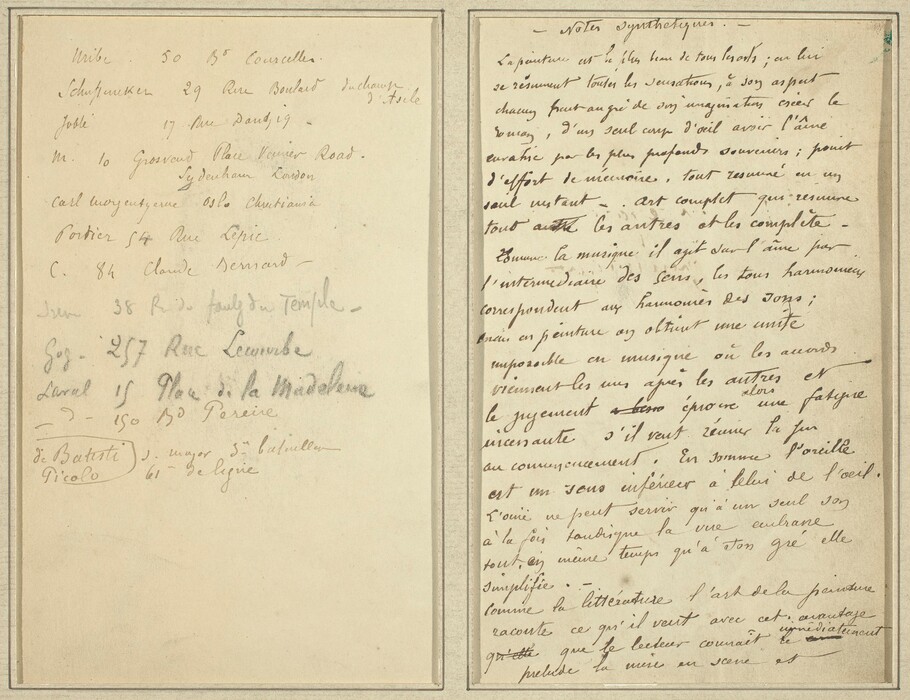 Uribe. 50 Bd Courcelles.
Schuffneker 29 Rue Boulard du champ
d'Asile
Jobbé 17 Rue Dantzig -
M. 10 Grosvenor Place Venner Road.
Sydenham London
Carl Oslo Christiania
Portier 54 Rue Lepic.
C. 84 Claude Bernard -
38 R. du faubg du Temple -
Gog - 257 Rue Lecourbe
Laval 15 Place de la Madeleine
- d - 150 Bd Pereire
de Batisti
Picolo
s. major 3me bataillon
61 de ligne
- Notes Synthétiques. -
La peinture est le plus beau de tous les arts ; en lui
se résument toutes les sensations, à son aspect
chacun peut au gré de son imagination créer le
roman, d'un seul coup d'œil avoir l'âme
envahie par les plus profonds souvenirs ; point
d'effort de mémoire, tout resumé en un
seul instant - . Art complet qui resume
tout les autres et les complète -
Comme la musique il agit sur l'âme par
l'intermédiaire des sens, les tons harmonieux
correspondent aux harmonies des sons ;
mais en peinture on obtient une unité
impossible en musique où les accords
viennent les uns après les autres et
le jugement éprouve alors une fatigue
incessante s'il veut réunir la fin
au commencement. En somme l'oreille
est un sens inférieur à celui de l'oeil.
L'ouïe ne peut servir qu'à un seul son
à la fois tandisque la vue embrasse
tout, en même temps qu'à son gré elle
simplifie. -
Comme la littérature l'art de la peinture
raconte ce qu'il veut avec cet avantage
que le lecteur connaît immédiatement
prélude la mise en scène et